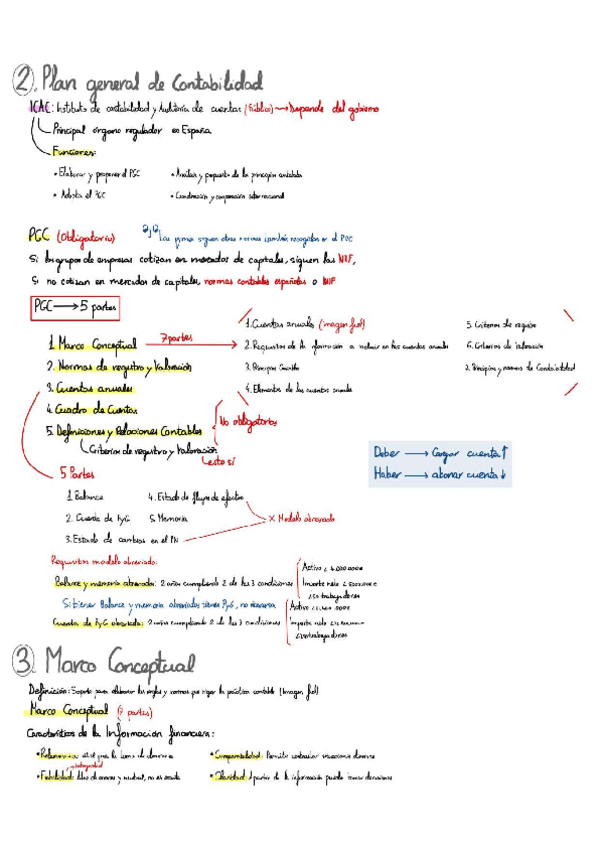 2. Plan general de Contabilidad
ICAC: Instituto de contabilidad y Auditoría de cuentas (Público) → Depende del gobierno
Principal órgano regulador en España
Funciones:
• Elaborar y proponer el PGC
• Análisis y propuesta de los principios contables
• Adapta el PGC
• Coordinación y cooperación internacional
PGC (Obligatorio)
Las pymes siguen otras normas también recogidas en el PGC
Si los grupos de empresas cotizan en mercados de capitales, siguen las NIIF,
Si no cotizan en mercados de capitales, normas contables españolas o NIIF
PGC → 5 partes
1. Marco Conceptual
7 partes
1. Cuentas anuales (imagen fiel)
2. Requisitos de la información a incluir en las cuentas anuales
3. Principios Contables
4. Elementos de las cuentas anuales
5. Criterios de registro
6. Criterios de valoración
7. Principios y normas de Contabilidad
2. Normas de registro y Valoración
3. Cuentas anuales
4. Cuadro de Cuentas
5. Definiciones y Relaciones Contables
No obligatorios
Criterios de registro y Valoración
esto sí
Deber → Cargar cuenta ↑
Haber → abonar cuenta ↓
5 Partes
1. Balance
4. Estado de flujo de efectivo
2. Cuenta de PyG
5. Memoria
3. Estado de cambios en el PN
× Modelo abreviado
Requisitos modelo abreviado:
Balance y memoria abreviada: 2 años cumpliendo 2 de las 3 condiciones
Activo < 4.000.000€
Importe neto <
<50 trabajadores
Si tienen Balance y memoria abreviados tienen PyG, no necesaria
Cuenta de PyG abreviada: 2 años cumpliendo 2 de las 3 condiciones
Activo <
Importe neto <
trabajadores
3. Marco Conceptual
Definición: Soporte para elaborar las reglas y normas que rigen la práctica contable (Imagen fiel)
Marco Conceptual (7 partes)
Características de la Información financiera:
• Relevancia: útil para la toma de
• Comparabilidad: Permite contrastar
integridad
• Fiabilidad: libre de errores y neutral, no es sesgada
• Claridad: A partir de la información puedo tomar decisiones